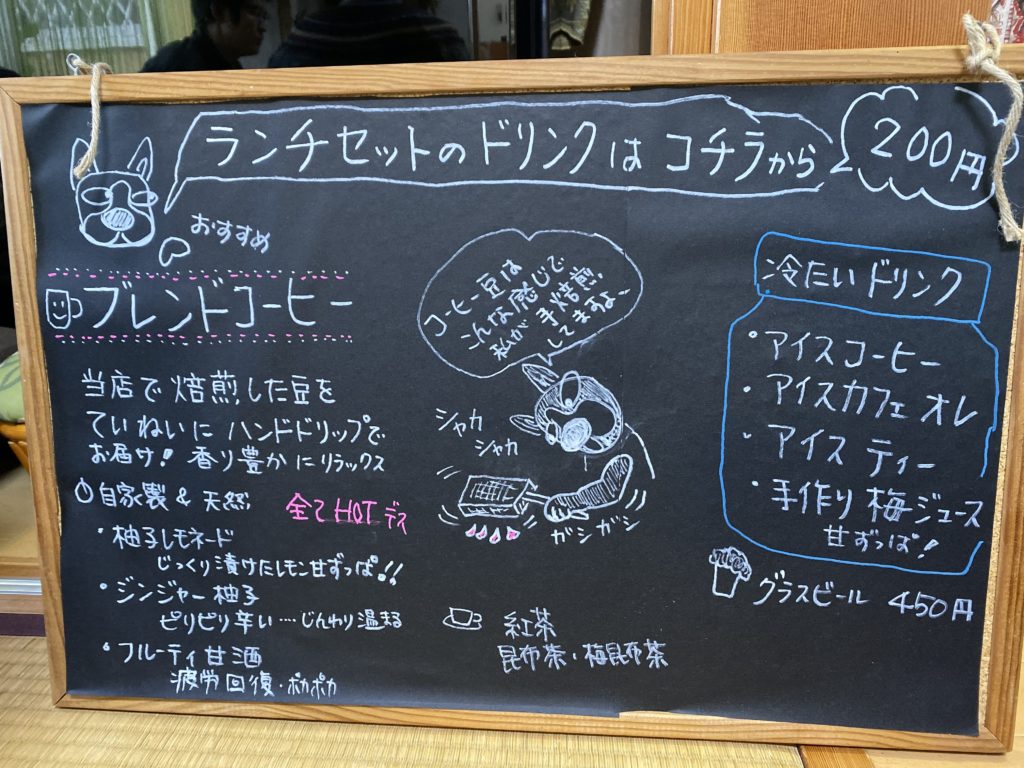 ランチセットのドリンクはコチラから
200円
おすすめ
ブレンドコーヒー
当店で焙煎した豆を
ていねいにハンドドリップで
お届け！香り豊かにリラックス
自家製&天然
全てHOTデス
・柚子レモネード
じっくり漬けたレモン甘ずっぱ!!
・ジンジャー柚子
ピリピリ辛い…じんわり温まる
・フルーティ甘酒
疲労回復・ポカポカ
コーヒー豆は
こんな感じで
私が手焙煎
してますよ〜
シャカ
シャカ
ガシガシ
紅茶
昆布茶・梅昆布茶
冷たいドリンク
・アイスコーヒー
・アイスカフェオレ
・アイスティー
・手作り梅ジュース
甘ずっぱ！
グラスビール 450円